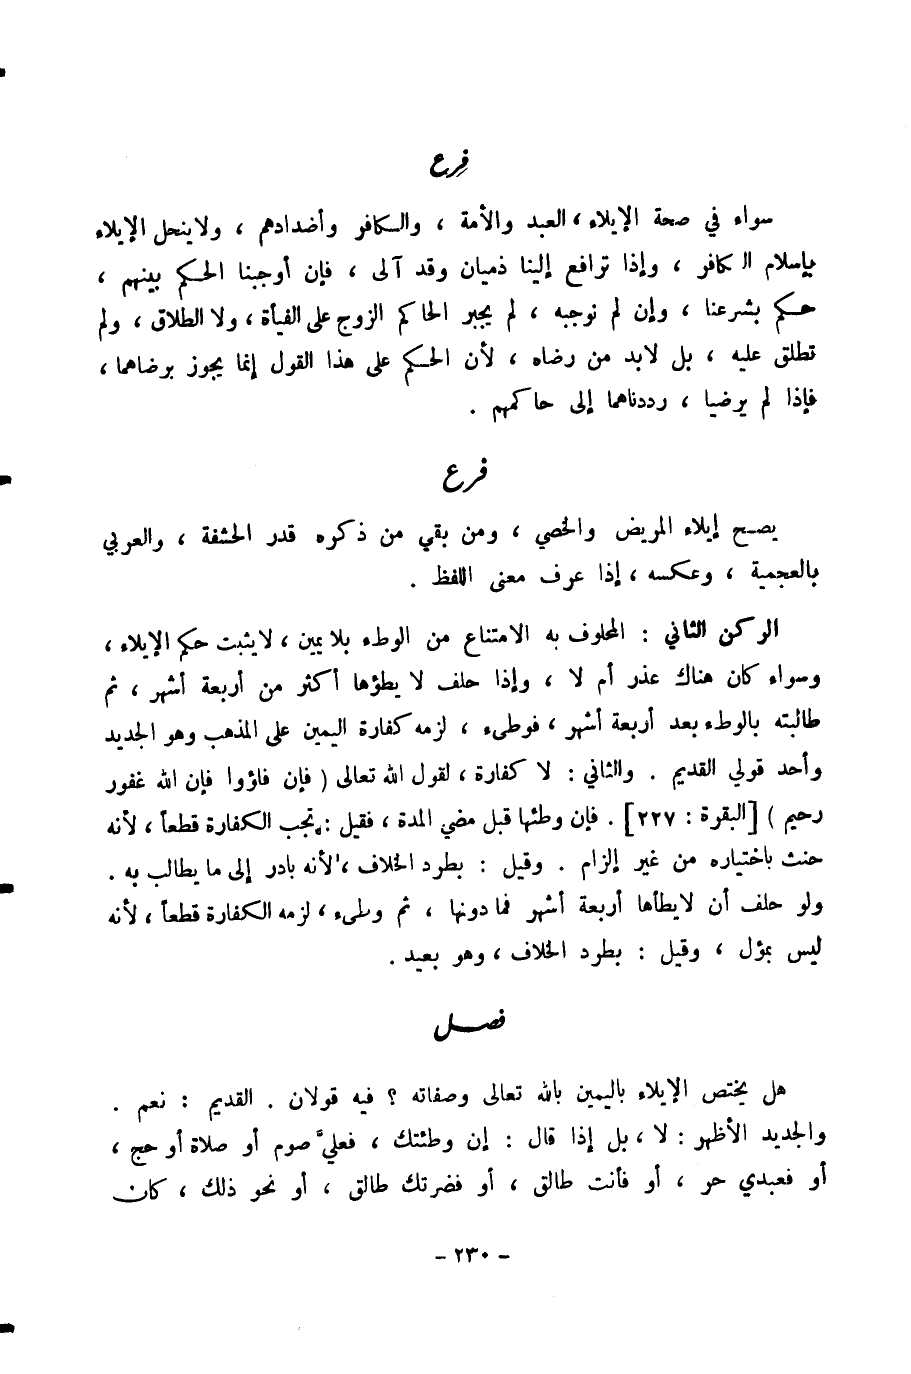 فرع
سواء في صحة الإيلاء ، العبد والأمة ، والكافر وأضدادهم ، ولاينحل الإيلاء
بإسلام الكافر ، وإذا ترافع إلينا ذميان وقد آلى ، فإن أوجبنا الحكم بينهم ،
حكم بشرعنا ، وإن لم نوجبه ، لم يجبر الحاكم الزوج على الفيأة ، ولا الطلاق ، ولم
تطلق عليه ، بل لابد من رضاه ، لأن الحكم على هذا القول إنما يجوز برضاهما ،
فإذا لم يرضيا ، رددناهما إلى حاكمهم .
فرع
يصح إيلاء المريض والخصي ، ومن بقي من ذكره قدر الحشفة ، والعربي
بالعجمية ، وعكسه ، إذا عرف معنى اللفظ .
الركن الثاني : المحلوف به الامتناع من الوطء بلا يمين ، لا يثبت حكم الإيلاء ،
وسواء كان هناك عذر أم لا ، وإذا حلف لا يطؤها أكثر من أربعة أشهر ، ثم
طالبته بالوطء بعد أربعة أشهر ، فوطىء ، لزمه كفارة اليمين على المذهب وهو الجديد
وأحد قولي القديم . والثاني : لا كفارة ، لقول الله تعالى ( فإن فاؤوا فإن الله غفور
رحيم ) [البقرة : ٢٢٧] . فإن وطئها قبل مضي المدة ، فقيل : تجب الكفارة قطعاً ، لأنه
حنث باختياره من غير إلزام . وقيل : بطرد الخلاف ، لأنه بادر إلى ما يطالب به .
ولو حلف أن لايطأها أربعة أشهر فما دونها ، ثم وطىء ، لزمه الكفارة قطعاً ، لأنه
ليس بمؤل ، وقيل : بطرد الخلاف ، وهو بعيد .
فصل
هل يختص الإيلاء باليمين بالله تعالى وصفاته ؟ فيه قولان . القديم : نعم .
والجديد الأظهر : لا ، بل إذا قال : إن وطئتك ، فعليَّ صوم أو صلاة أو حج ،
أو فعبدي حر ، أو فأنت طالق ، أو فضرتك طالق ، أو نحو ذلك ، كان
- ٢٣٠ -